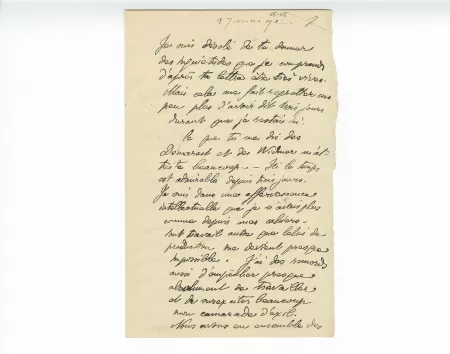 17 mai 92
Je suis désolé de te donner
des inquiétudes que je comprends
d'après ta lettre être très vives.
Mais cela me fait regretter un
peu plus d'avoir dit trois jours
durant que je restais ici.
Ce que tu me dis des
Démarest et des Widmer m'at-
triste beaucoup - Ici le temps
est admirable depuis trois jours.
Je suis dans une effervescence
intellectuelle que je n'avais plus
connue depuis mes cahiers -
tout travail autre que celui de
production me devient presque
impossible. J'ai des remords
aussi d'empêcher presque
absolument de travailler
et de surexciter beaucoup
mon camarade d'exil.
Nous avons eu ensemble des